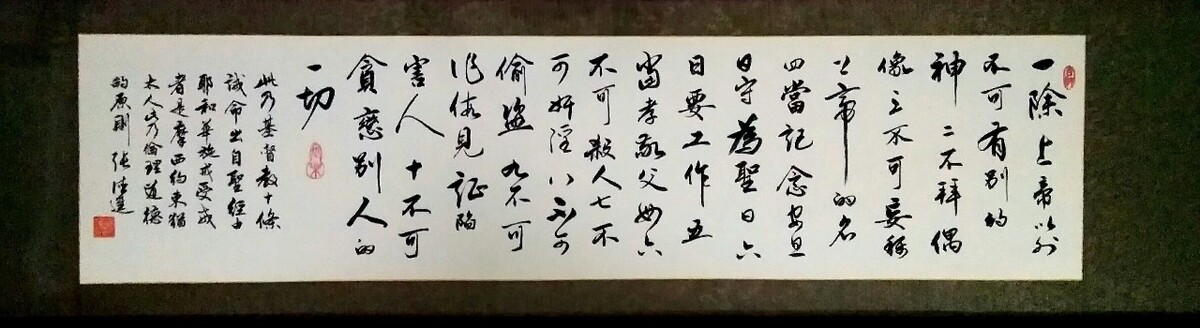 一除上帝以外
不可有別的
神 二不拜偶
像三不可妄稱
上帝的名
四當記念安息
日守為聖日六
日要工作五
當孝敬父母六
不可殺人七不
可奸淫八不可
偷盜九不可
作假見証陷
害人十不可
貪戀別人的
一切
此乃基督教十條
誡命出自聖經由
耶和華施戒受戒
者是摩西約束猶
太人此乃倫理道德
的原則 張